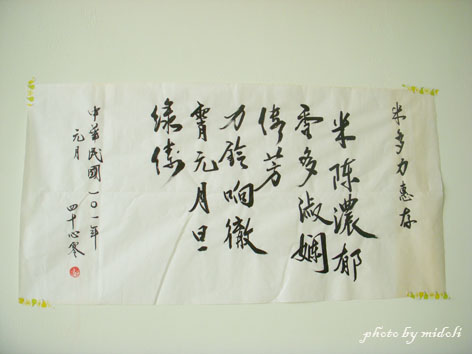 米多力惠存
米陳濃郁
雪多淑嫻
倚芳
力鈴响徹
霄元月旦
綠倚
中華民國一0一年
元月
四十心零
photo by midoli